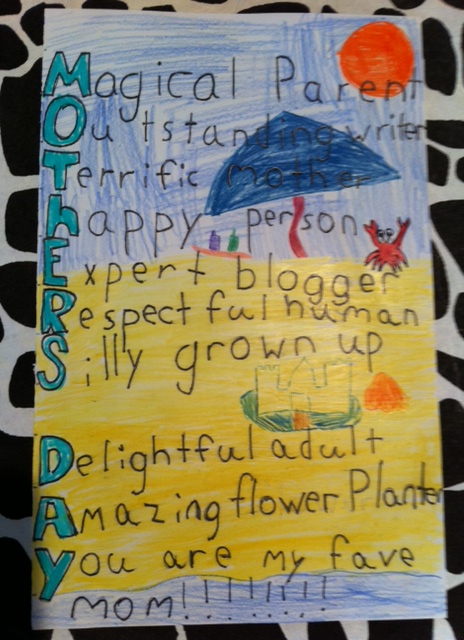 Magical Parent
Outstanding writer
Terrific mother
happy person
Expert blogger
Respectful human
Silly grown up
Delightful adult
Amazing flower Planter
You are my fave
mom!!!!!!!!!